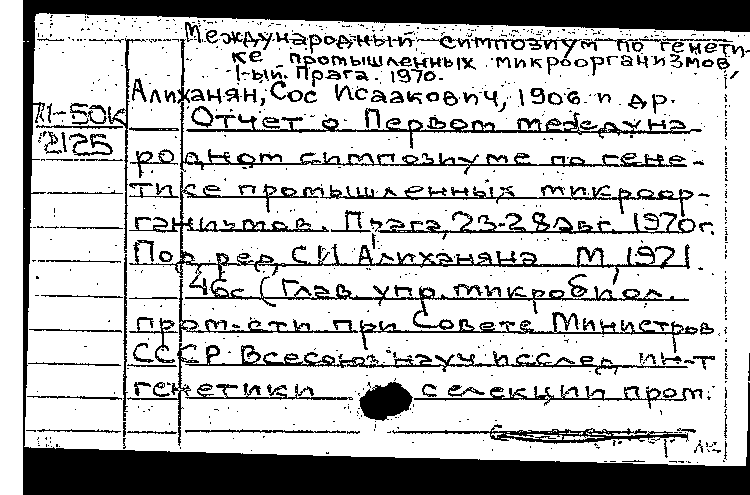 Международный симпозиум по генети-
ке промышленных микроорганизмов,
1-ый. Прага. 1970.
Алиханян, Сос Исаакович, 1906. и др.
71-50К
2125
Отчет о Первом междуна-
родном симпозиуме по гене-
тике промышленных микроор-
ганизмов. Прага, 23-28 авг. 1970г.
Под ред. С И Алиханяна М, 1971.
46с (Глав. упр. микробиол.
пром-сти при Совете Министров
СССР. Всесоюз. науч. исслед. ин-т
генетики селекции пром.